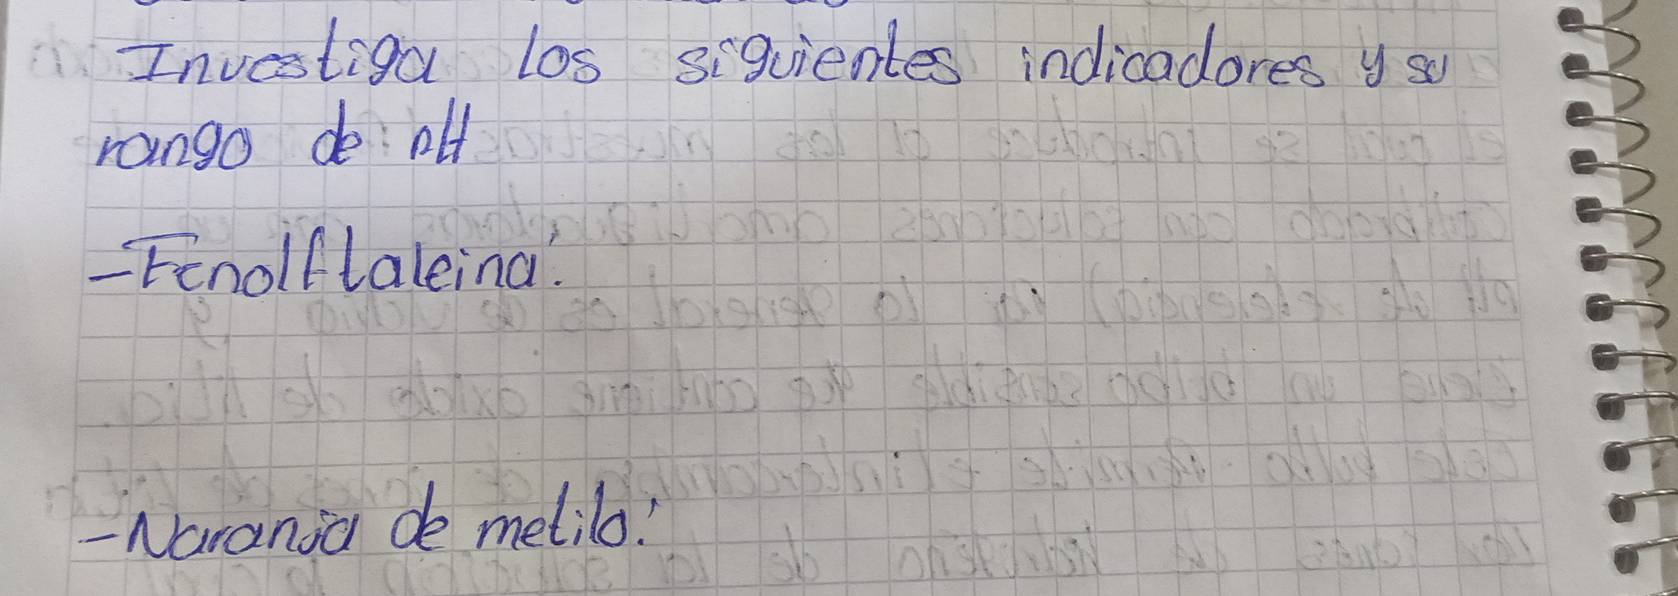 Investiga los siguientes indicadores y su
rango de pH
-Fenolftaleina:
-Naranja de metilo: